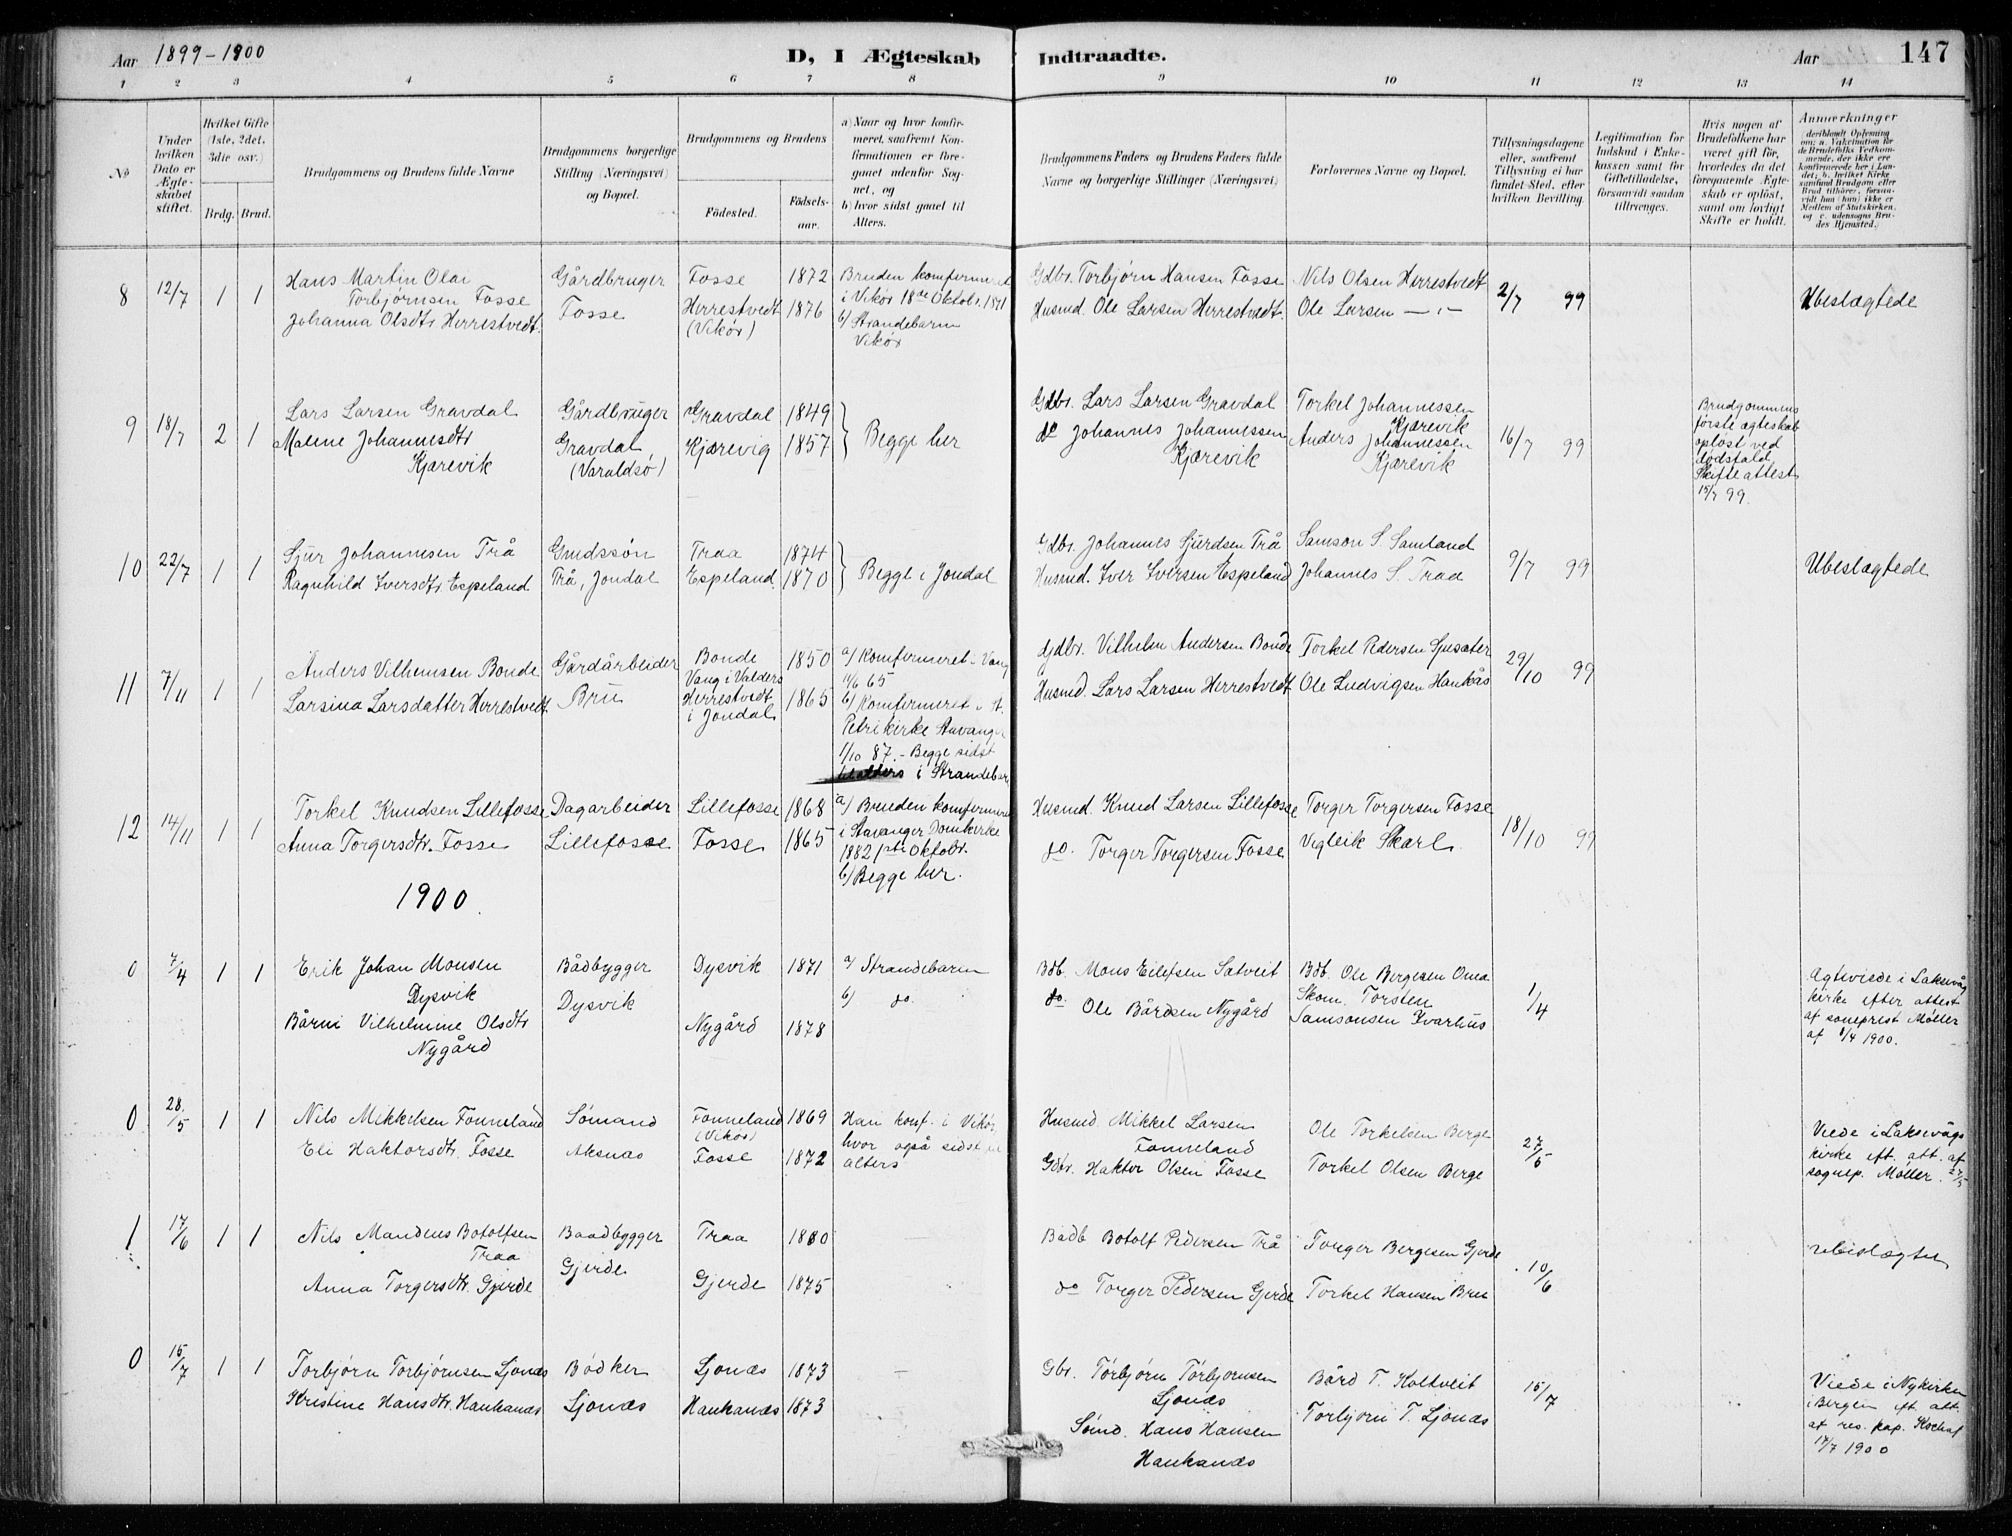 Aar 1899-1900
D, I Ægteskab Indtraadte.
Aar
147
1 2 3 4 5 6 7 8 9 10 11 12 13 14
No
Under hvilken Dato er Ægteskabet stiftet.
Hvilket Gifte (1ste, 2det, 3die osv.)
Brdg. Brud.
Brudgommens og Brudens fulde Navne
Brudgommens borgerlige Stilling (Næringsvei) og Bopæl.
Brudgommens og Brudens
Fødested.
Fødselsaar.
a) Naar og hvor konfirmeret, saafremt Konfirmationen er foregaaet udenfor Sognet, og
b) hvor sidst gaaet til Alters.
Brudgommens Faders og Brudens Faders fulde Navne og borgerlige Stillinger (Næringsvei)
Forlovernes Navne og Bopæl.
Tillysningsdagene eller, saafremt Tillysning ei har fundet Sted, efter hvilken Bevilling.
Legitimation for Indskud i Enkekassen samt for Giftetilladelse, forsaavidt saadan tiltrænges.
Hvis nogen af Brudefolkene har været gift før, hvorledes da det foregaaende Ægteskab er opløst, samt om lovligt Skifte er holdt.
Anmærkninger
8 12/7 1 1
Hans Martin Olai
Torbjørnsen Fosse
Johanna Olsdtr Herrestvedt.
Gårdbruger
Fosse
Fosse 1872
Herrestvedt 1876
(Vikör)
Bruden komfermeret
i Vikör 18de Oktobr. 1891
b/ Strandebarm
Vikör
Gdbr. Torbjørn Hansen Fosse
Husmd. Ole Larsen Herrestvedt.
Nils Olsen Herrestvedt
Ole Larsen — " —
2/7 99
Ubeslægtede
9 18/7 2 1
Lars Larsen Gravdal
Malene Johannesdtr
Kjærevik
Gårdbruger
Gravdal
(Varaldsö)
Gravdal 1849
Kjærevig 1857
Begge her
Gdbr. Lars Larsen Gravdal
do Johannes Johannessen
Kjærevik
Torkel Johannessen
Kjærevik
Anders Johannessen
Kjærevik
16/7 99
Brudgommens
første ægteskab
opløst ved
dødsfald,
Skifteattest
15/7 99.
10 22/7 1 1
Sjur Johannesen Trå
Ragnhild Iversdtr. Espeland
Gmdssøn
Trå, Jondal
Traa 1874
Espeland 1870
Begge i Jondal
Gdbr. Johannes Sjurdsen Trå
Husmd. Iver Iversen Espeland
Samson S. Samland
Johannes S. Traa
9/7 99
Ubeslægtede
11 7/11 1 1
Anders Vilhemsen Bonde
Larsina Larsdatter Herrestvedt
Gårdårbeider
Bru
Bonde 1850
Vang i Valders
Herrestvedt 1865
i Jondal
a/ Komfermeret i Vang
11/6 65
b/ Komfermeret i St.
Petrikirke Stavanger
1/10 87. - Begge sidst
til alters i Strandebarm
Gdbr. Vilhelm Andersen Bonde
Husmd. Lars Larsen Herrestvedt
Torkel Pedersen Gjusæter
Ole Ludvigsen Haukås
29/10 99
12 14/11 1 1
Torkel Knudsen Lillefosse
Anna Torgersdtr. Fosse
Dagarbeider
Lillefosse
Lillefosse 1868
Fosse 1865
a/ Bruden komfermeret
i Stavanger Domkirke
1882 1ste Oktobr.
b/ Begge her.
Husmd. Knud Larsen Lillefosse
do. Torger Torgersen Fosse
Torger Torgersen Fosse
Vigleik Skarl.
18/10 99
1900.
0 7/4 1 1
Erik Johan Monsen
Dysvik
Bårni Vilhelmine Olsdtr
Nygård
Bådbygger
Dysvik
Dysvik 1871
Nygård 1878
a/ Strandebarm
b) do.
Bdb. Mons Eilefsen Satveit
do. Ole Bårdsen Nygård
Bdb. Ole Bergesen Oma
Skom. Torsten
Samsonsen Kvarhus
1/4
Ægteviede i Laksevåg
kirke efter attest
af soneprest Møller
af 8/4 1900.
0 28/5 1 1
Nils Mikkelsen Fonneland
Eli Haktorsdtr. Fosse
Sømand
Aksnæs
Fonneland 1869
(Vikör)
Fosse 1872
Han konf. i Vikör,
hvor også sidst til
alters
Husmd. Mikkel Larsen
Fonneland
Gdbr. Haktor Olsen Fosse
Ole Torkelsen Berge
Torkel Olsen Berge
27/5
Viede i Laksevågs
kirke eft. att. af
sognep. Møller 27/5
1 17/6 1 1
Nils Mandeus Botolfsen
Traa
Anna Torgersdtr. Gjerde
Baadbygger
Gjerde
Traa 1880
Gjerde 1875
Badb Botolf Pedersen Trå
do Torger Pedersen Gjerde
Torger Bergesen Gjerde
Torkel Hansen Bru
10/6
ubeslægtet
0 15/7 1 1
Torbjørn Torbjørnsen Ljonæs
Kristine Hansdtr. Haukanæs
Bødker
Ljonæs
Ljonæs 1873
Haukanæs 1873
Gbr. Torbjørn Torbjørnsen
Ljonæs
Sømd. Hans Hansen
Haukanæs
Bård T. Koltveit
Torbjørn T. Ljonæs
15/7
Viede i Nykirken
i Bergen eft. att.
af res. kap. Koch af
17/7 1900